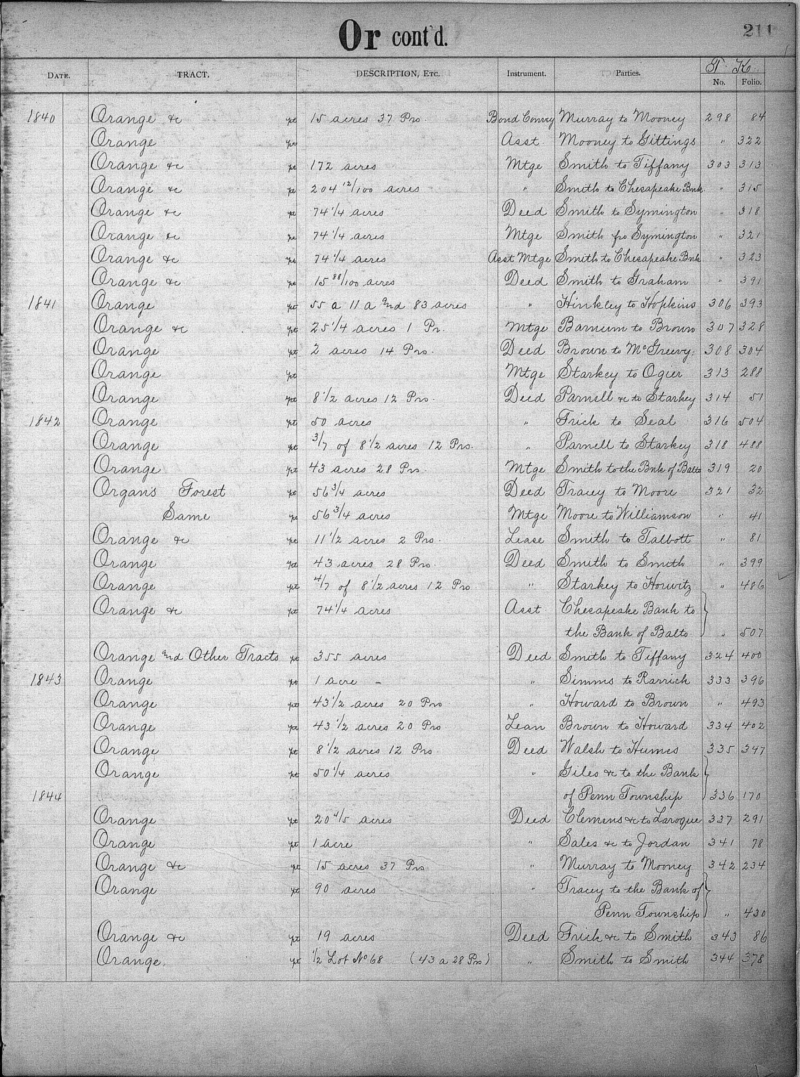 Or cont'd.
211
T. K
DATE. TRACT. DESCRIPTION, ETC. Instrument. Parties. No. Folio.
1840 Orange &c pt 15 acres 37 Prs Bond Convy Murray to Mooney 298 84
Orange pt Asst Mooney to Gittings " 322
Orange &c pt 172 acres Mtge Smith to Tiffany 303 313
Orange &c pt 204 12/100 acres " Smith to Chesapeake Bnk " 315
Orange &c pt 74 1/4 acres Deed Smith to Symington " 318
Orange &c pt 74 1/4 acres Mtge Smith fro Symington " 321
Orange &c pt 74 1/4 acres Asst Mtge Smith to Chesapeake Bnk " 323
Orange &c pt 15 38/100 acres Deed Smith to Graham " 391
1841 Orange pt 55 a 11 a and 83 acres " Hinkley to Hopkins 306 393
Orange &c pt 25 1/4 acres 1 Pr. Mtge Barnum to Brown 307 328
Orange pt 2 acres 14 Prs. Deed Brown to McGreevy 308 304
Orange pt Mtge Starkey to Ogier 313 288
Orange pt 8 1/2 acres 12 Prs. Deed Parnell &c to Starkey 314 51
1842 Orange pt 50 acres " Frick to Seal 316 504
Orange pt 3/7 of 8 1/2 acres 12 Prs. " Parnell to Starkey 318 488
Orange pt 43 acres 28 Prs. Mtge Smith to the Bnk of Balto 319 20
Organs Forest pt 56 3/4 acres Deed Tracey to Moore 321 32
Same pt 56 3/4 acres Mtge Moore to Williamson " 41
Orange &c pt 11 1/2 acres 2 Prs. Lease Smith to Talbott " 81
Orange pt 43 acres 28 Prs Deed Smith to Smith " 399
Orange pt 4/7 of 8 1/2 acres 12 Prs " Starkey to Horwitz " 486
Orange &c pt 74 1/4 acres Asst Chesapeake Bank to
the Bank of Balto " 507
Orange and Other Tracts pt 355 acres Deed Smith to Tiffany 324 400
1843 Orange pt 1 acre " Simms to Rarrick 333 396
Orange pt 43 1/2 acres 20 Prs " Howard to Brown " 493
Orange pt 43 1/2 acres 20 Prs Lean Brown to Howard 334 402
Orange pt 8 1/2 acres 12 Prs. Deed Walsh to Humes 335 347
Orange pt 50 1/4 acres " Giles &c to the Bank
1844 of Penn Township 336 170
Orange pt 20 4/5 acres Deed Clemens &c to Laroque 337 291
Orange pt 1 acre " Sales &c to Jordan 341 78
Orange &c pt 15 acres 37 Prs " Murray to Mooney 342 234
Orange pt 90 acres " Tracey to the Bank of
Penn Township " 430
Orange &c pt 19 acres Deed Frick &c to Smith 343 86
Orange. pt 1/2 Lot No 68 (43 a 28 Prs) " Smith to Smith 344 378